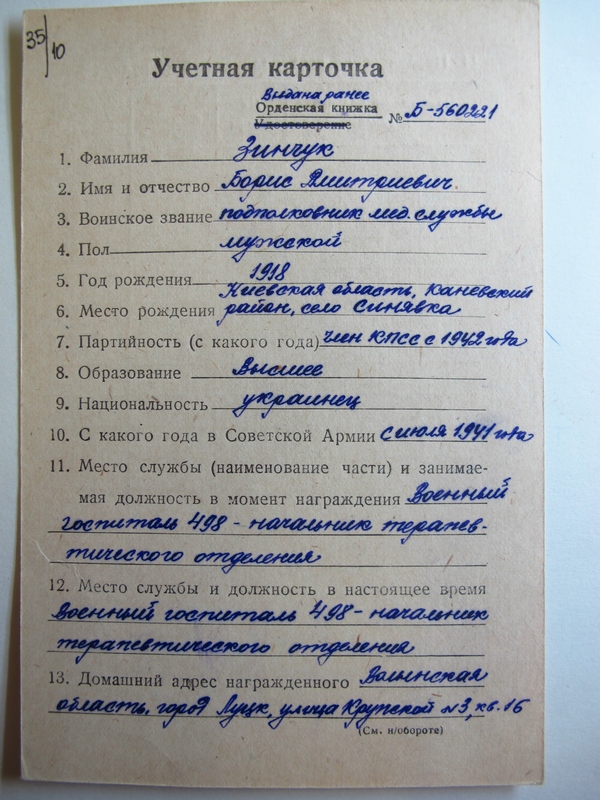 35/10
Учетная карточка
Выдана ранее
Орденская книжка
Удостоверение
№ Б-560221
1. Фамилия Зинчук
2. Имя и отчество Борис Дмитриевич
3. Воинское звание подполковник мед. службы
4. Пол мужской
5. Год рождения 1918
Киевская область, Каневский
6. Место рождения район, село Синявка
7. Партийность (с какого года) член КПСС с 1942 года
8. Образование Высшее
9. Национальность украинец
10. С какого года в Советской Армии с июля 1941 года
11. Место службы (наименование части) и занимае-
мая должность в момент награждения Военный
госпиталь 498 - начальник терапев-
тического отделения
12. Место службы и должность в настоящее время
Военный госпиталь 498 - начальник
терапевтического отделения
13. Домашний адрес награжденного Волынская
область, город Луцк, улица Крупской №3, кв. 16
(См. н/обороте)